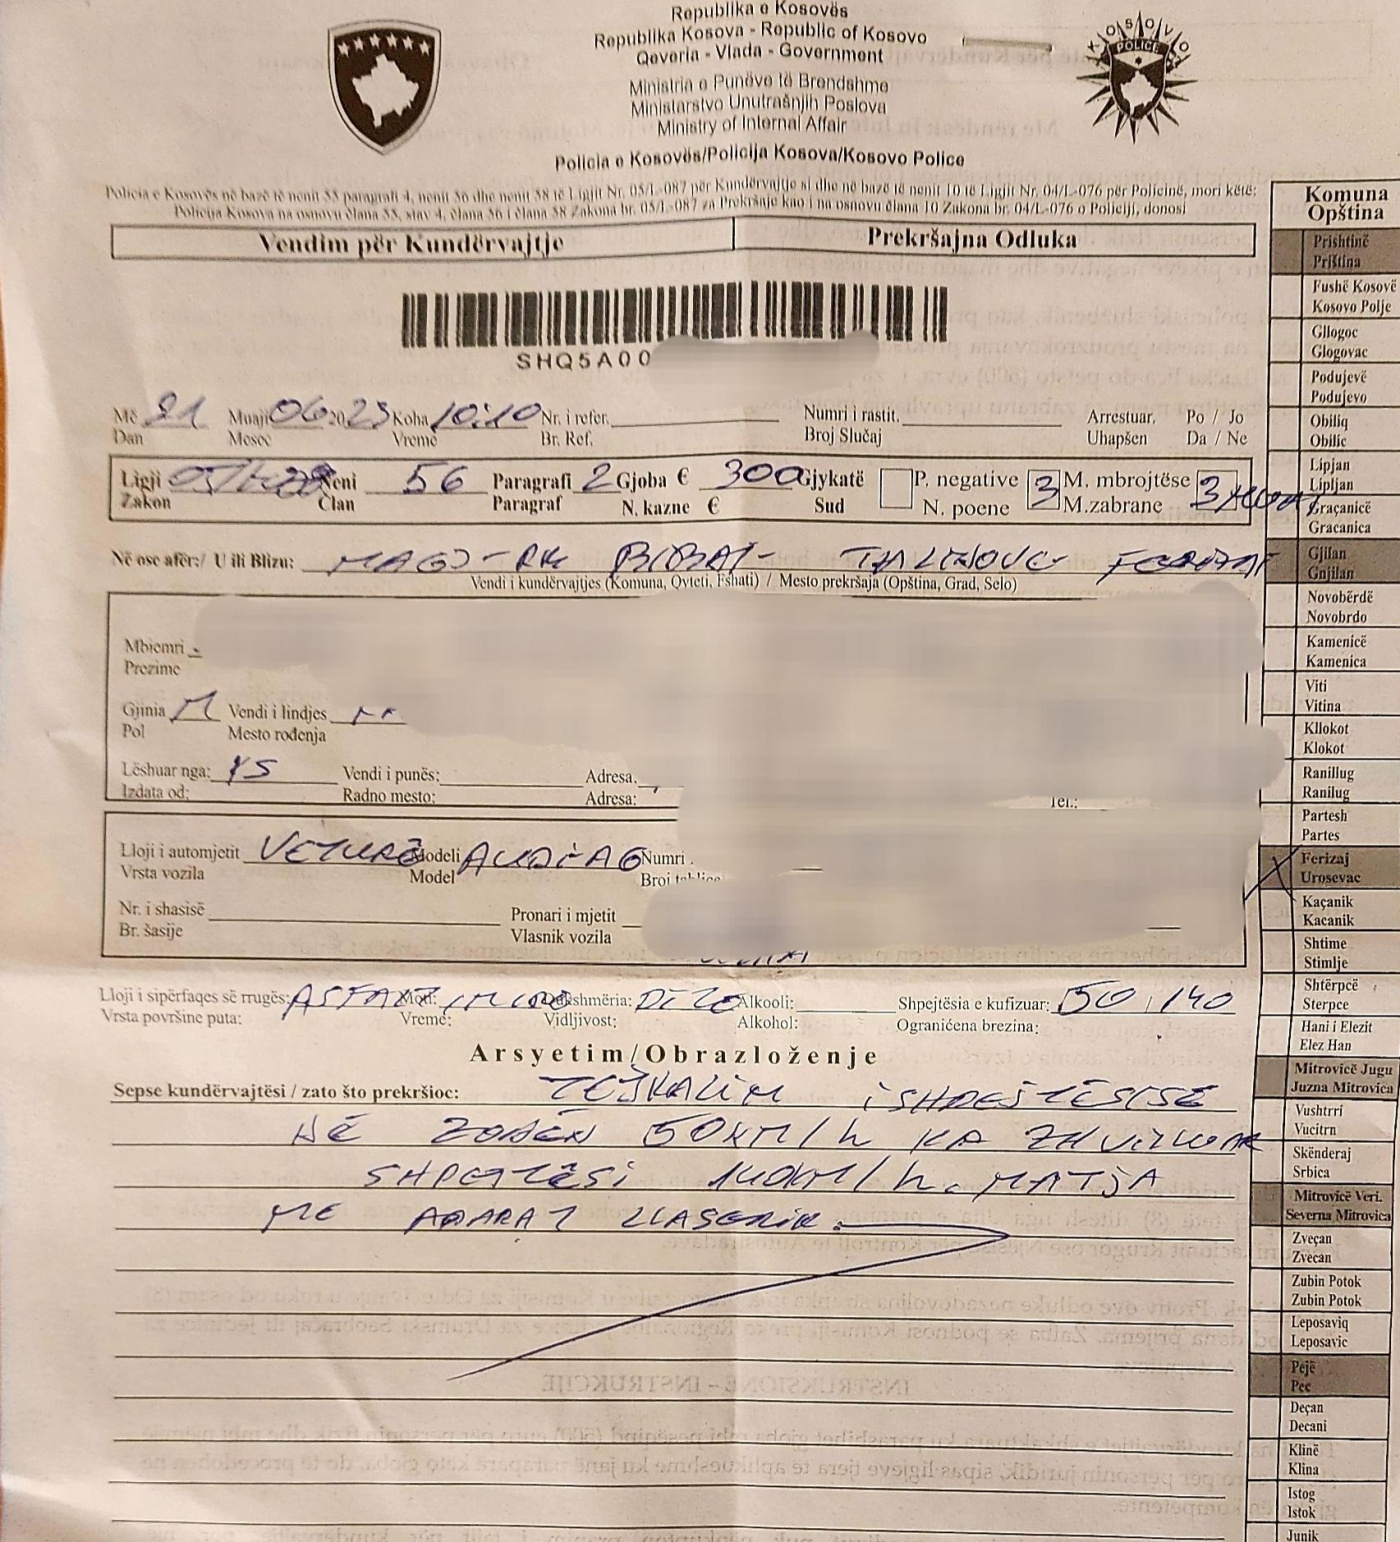 Republika e Kosovës
Republika Kosova - Republic of Kosovo
Qeveria - Vlada - Government
Ministria e Punëve të Brendshme
Ministarstvo Unutrašnjih Poslova
Ministry of Internal Affair
Policia e Kosovës/Policija Kosova/Kosovo Police
KOSOVO
POLICE
Policia e Kosovës në bazë të nenit 55 paragrafi 4, nenit 56 dhe nenit 58 të Ligjit Nr. 05/L-087 për Kundërvajtje si dhe në bazë të nenit 10 të Ligjit Nr. 04/L-076 për Policinë, mori këtë:
Policija Kosova na osnovu člana 55, stav 4, člana 56 i člana 58 Zakona br. 05/L-087 za Prekršaje kao i na osnovu člana 10 Zakona br. 04/L-076 o Policiji, donosi
Vendim për Kundërvajtje Prekršajna Odluka
SHQ5A00
Më 21 Muaji 06 2023 Koha 10:10 Nr. i refer. Numri i rastit. Arrestuar. Po / Jo
Dan Mesec Vreme Br. Ref. Broj Slučaj Uhapšen Da / Ne
Ligji Neni 56 Paragrafi 2 Gjoba € 300 Gjykatë P. negative 3 M. mbrojtëse 3
Zakon Član Paragraf N. kazne € Sud N. poene M.zabrane
Në ose afër:/ U ili Blizu: MAGJ-RR BIBAJ- TALINOVC FERIZAJ
Vendi i kundërvajtjes (Komuna, Qyteti, Fshati) / Mesto prekršaja (Opština, Grad, Selo)
Mbiemri
Prezime
Gjinia M Vendi i lindjes
Pol Mesto rođenja
Lëshuar nga: KS Vendi i punës: Adresa.
Izdata od: Radno mesto: Adresa: Tel.:
Lloji i automjetit VETURË Modeli AUDI A6 Numri
Vrsta vozila Model Broj
Nr. i shasisë Pronari i mjetit
Br. šasije Vlasnik vozila
Lloji i sipërfaqes së rrugës: ASFALT Moti: Dukshmëria: Alkooli: Shpejtësia e kufizuar: 50 / 140
Vrsta površine puta: Vreme: Vidljivost: Alkohol: Ograničena brezina:
Arsyetim/Obrazloženje
Sepse kundërvajtësi / zato što prekršioc: TEJKALIM I SHPEJTËSISË
NË ZONËN 50KM/h KA ZHVILLUAR
SHPEJTËSI 140KM/h. MATJA
ME APARAT LLASERIK.
Komuna
Opština
Prishtinë
Priština
Fushë Kosovë
Kosovo Polje
Gllogoc
Glogovac
Podujevë
Podujevo
Obiliq
Obilic
Lipjan
Lipljan
Graçanicë
Gracanica
Gjilan
Gnjilan
Novobërdë
Novobrdo
Kamenicë
Kamenica
Viti
Vitina
Kllokot
Klokot
Ranillug
Ranilug
Partesh
Partes
X Ferizaj
Urosevac
Kaçanik
Kacanik
Shtime
Stimlje
Shtërpcë
Sterpce
Hani i Elezit
Elez Han
Mitrovicë Jugu
Juzna Mitrovica
Vushtrri
Vucitrn
Skënderaj
Srbica
Mitrovicë Veri.
Severna Mitrovica
Zveçan
Zvecan
Zubin Potok
Zubin Potok
Leposaviq
Leposavic
Pejë
Pec
Deçan
Decani
Klinë
Klina
Istog
Istok
Junik